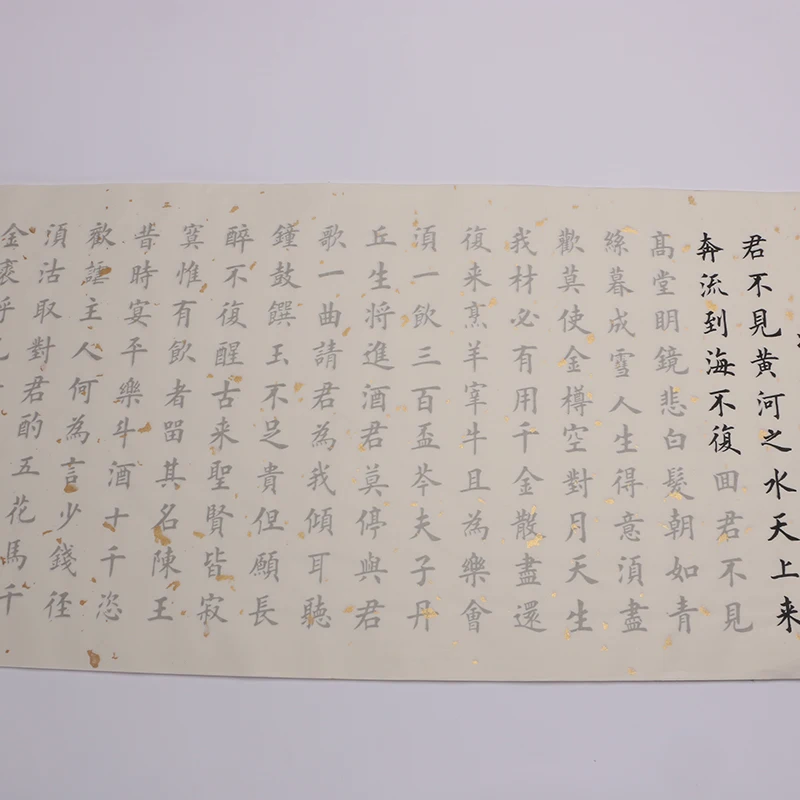 君不見黄河之水天上来
奔流到海不復囬君不見
髙堂眀鏡悲白髮朝如青
絲暮成雪人生得意湏盡
歡莫使金樽空對月天生
我材必有用千金散盡還
復来烹羊宰牛且為樂會
湏一飲三百盃岑夫子丹
丘生将進酒君莫停與君
歌一曲請君為我傾耳聽
鐘鼓饌玉不足貴但願長
醉不復醒古来聖賢皆寂
寞惟有飲者留其名陳王
昔時宴平樂斗酒十千恣
歡謔主人何為言少錢徑
湏沽取對君酌五花馬千
金裘呼